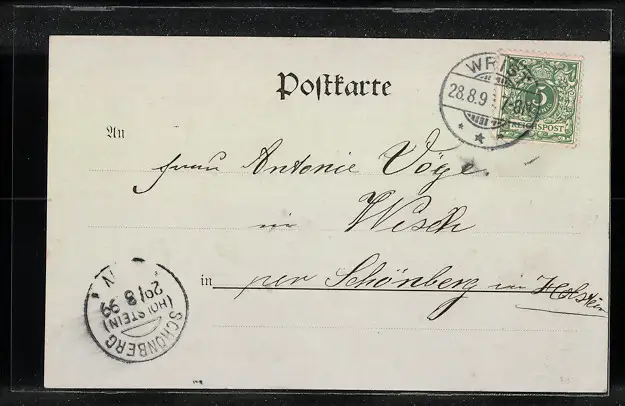 Postkarte
WRIST
28.8.9
7-8N
5
REICHSPOST
An
Frau Antonie Vöge.
in Wisch
in per Schönberg in Holstein
SCHÖNBERG
(HOLSTEIN)
29/8 99
N